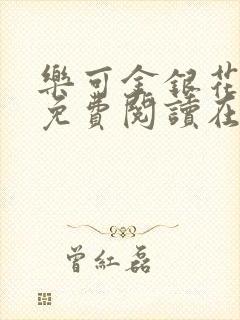 樂可金銀花
免費閱讀在
曾紅磊